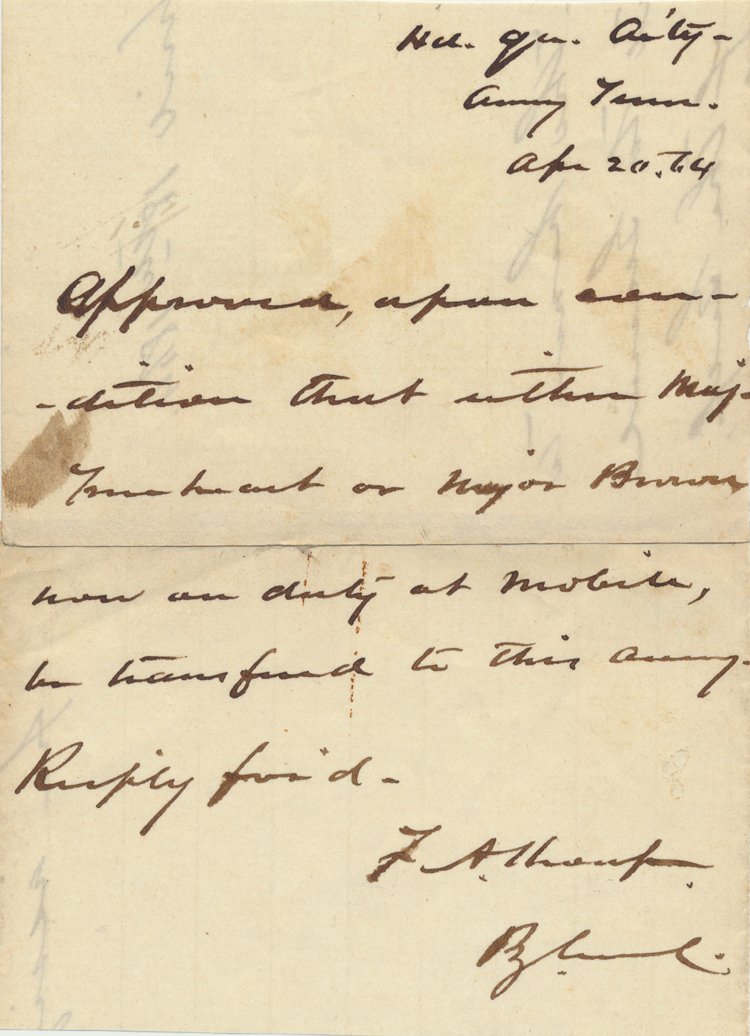 Hd. Qu. Art'y-
Army Tenn.
Apr 20. 64
Approved, upon con-
-dition that either Maj-
Trueheart or Major Brown
now on duty at Mobile,
be transferred to this army-
Resp'ly for'd-
F. A. Shoup
B. Genl.